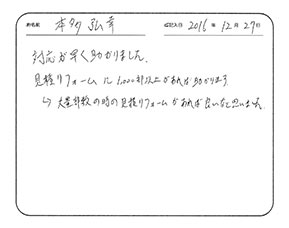 お名前 本多 弘幸 ご記入日 2016 年 12 月 27 日
対応が早く助かりました。
見積りフォームに1,000部以上があれば助かります
↳ 大量部数の時の見積りフォームがあれば良いなと思いました